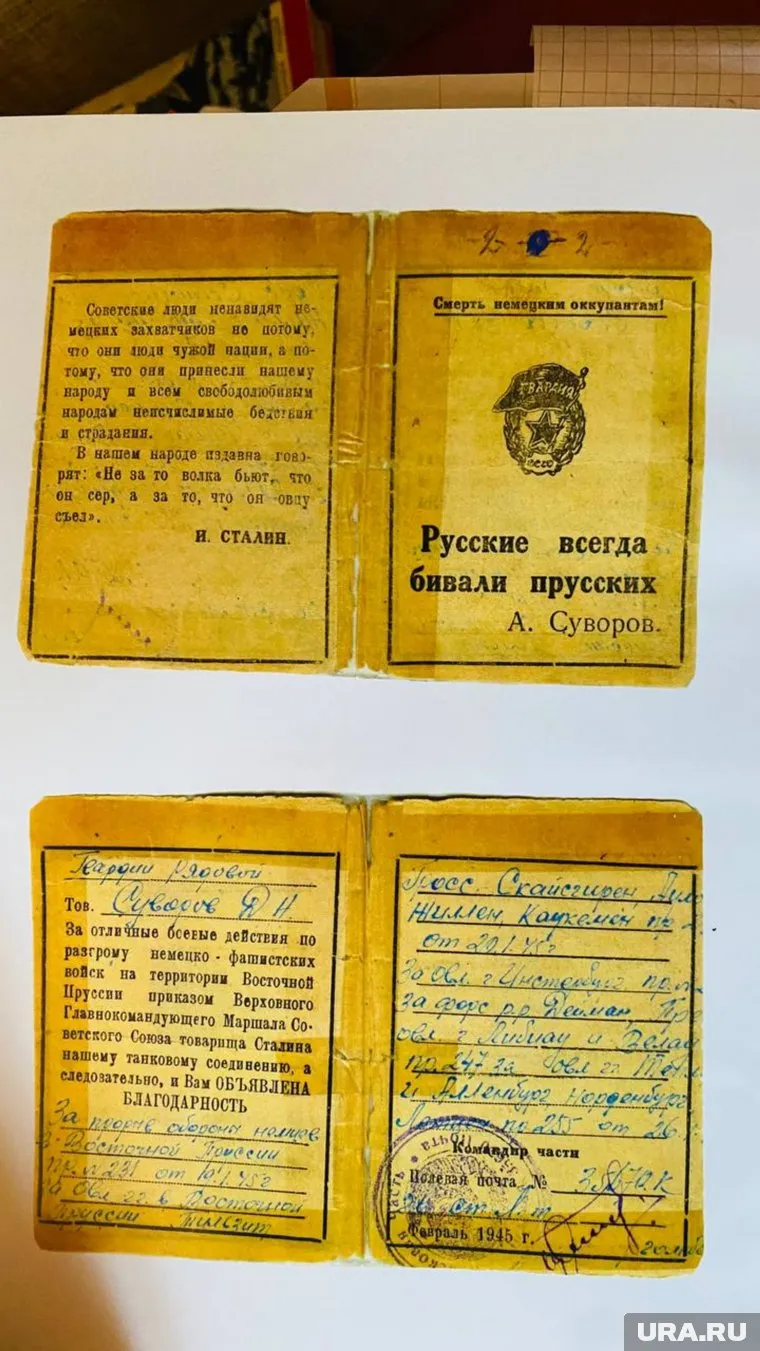 Советские люди ненавидят не-
мецких захватчиков не потому,
что они люди чужой нации, а по-
тому, что они принесли нашему
народу и всем свободолюбивым
народам неисчислимые бедствия
и страдания.
В нашем народе издавна гово-
рят: «Не за то волка бьют, что
он сер, а за то, что он овцу
съел».
И. СТАЛИН.
-2- -2-
Смерть немецким оккупантам!
ГВАРДИЯ
СССР
Русские всегда
бивали прусских
А. Суворов.
Гвардии рядовой
Тов. Суворов Д Н
За отличные боевые действия по
разгрому немецко-фашистских
войск на территории Восточной
Пруссии приказом Верховного
Главнокомандующего Маршала Со-
ветского Союза товарища Сталина
нашему танковому соединению, а
следовательно, и Вам ОБЪЯВЛЕНА
БЛАГОДАРНОСТЬ
За прорыв обороны немцев
в Восточной Пруссии
пр. № 231 от 19.1.45г
За овл гг в Восточной
Пруссии Тильзит
Скайсгирен,
Жиллен Каукемен пр
от 20.1.45г
За овл. г Инстербург пр.
За форс р.р. Дейман, Пре
овл г Либиау и Велау
пр. 247 за овл гг
и Алленбург Норденбург
пр 255 от 26.
Командир части
Полевая почта №
Февраль 1945 г.
URA.RU